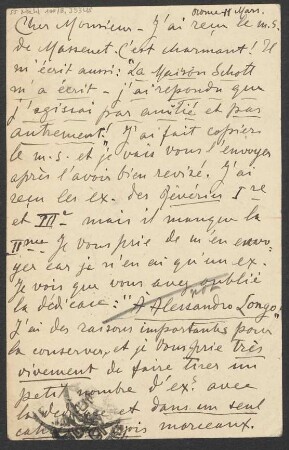 Rome 11 Mars.
Cher Monsieur - J'ai reçu le m.s.
de Massenet. C'est charmant! Il
m'écrit aussi: "La Maison Schott
m'a écrit - j'ai repondu que
j'agissai par amitié et pas
autrement! J'ai fait copier
le m.s. et je vais vous l'envoyer
après l'avoir bien revisé. J'ai
reçu les ex. des Rêveries Ire
et IIIe mais il manque la
IIme. Je vous prie de m'en envo-
yer car je n'en ai qu'un ex.
Je vois que vous avez oublié
la dédicace: "À Alessandro Longo"
J'ai des raisons importantes pour
la conserver, et je vous prie très
vivement de faire tirer un
petit nombre d'ex. avec
la et dans un seul
morceaux.